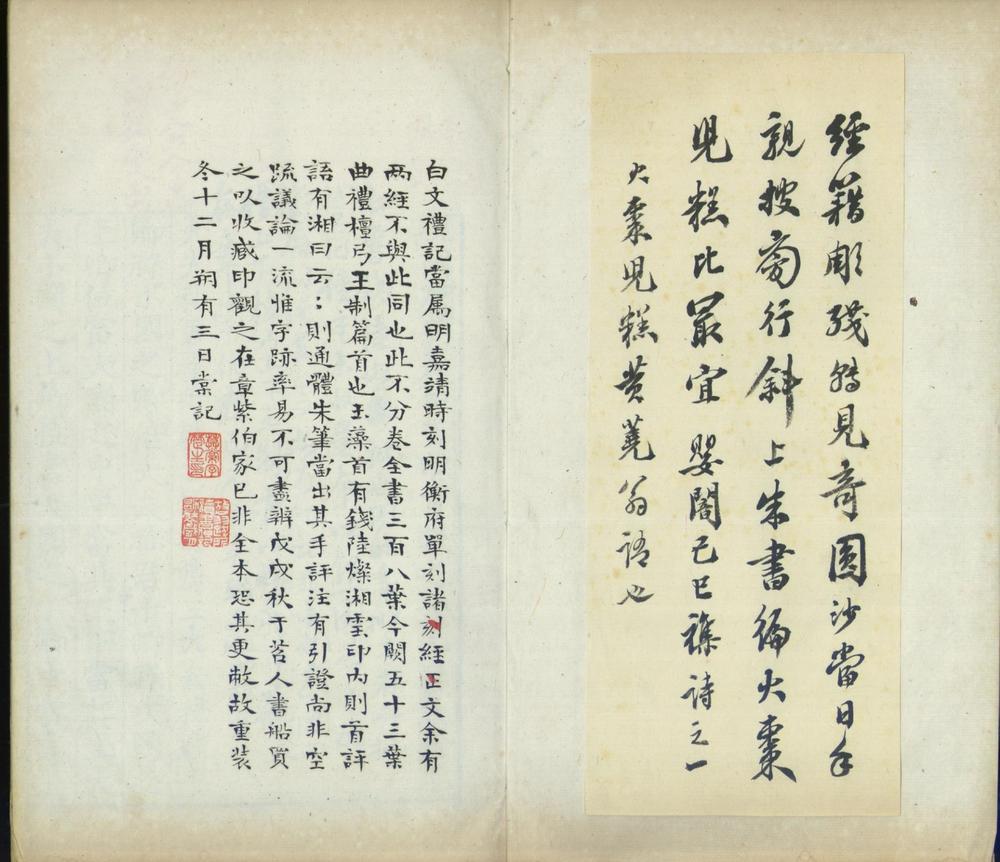 經籍彫殘顦見奇圓沙當日手
親披旁行斜上朱書徧火棗
兒糕比最宜 嬰闇己巳襍詩之一
火棗兒糕黄蕘翁語也
白文禮記當属明嘉清時刻明衡府單刻諸刻經正文余有
兩經不與此同也此不分卷全書三百八葉今闕五十三葉
曲禮檀弓王制篇首也玉藻首有錢陸燦湘霊印内則首評
語有湘曰云：則通體朱筆當出其手評注有引證尚非空
疏議論一流惟字跡率易不可盡辨戊戌秋于苕人書船買
之以收蔵印觀之在章紫伯家已非全本恐其更敝故重装
冬十二月朔有三日棠記